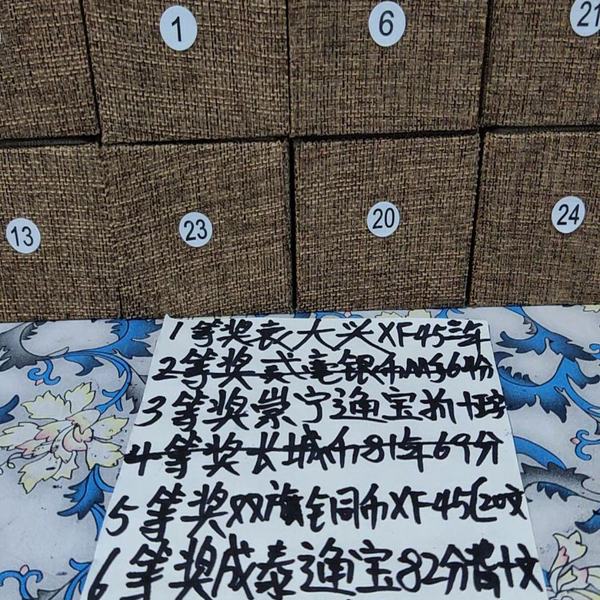 1
6
21
13
23
20
24
1等奖表大兴XF45三年
2等奖贰毫银币MS62分
3等奖崇宁通宝折十
4等奖长城币81年69分
5等奖双旗铜币XF45(20文
6等奖咸泰通宝82分背十文